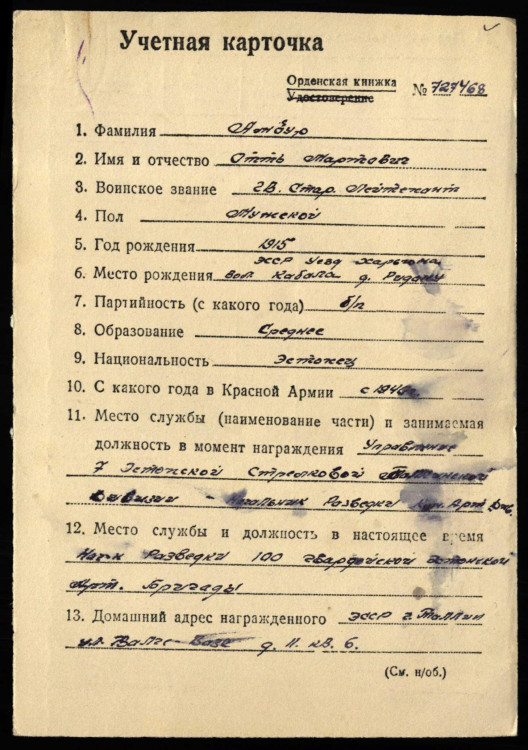 Учетная карточка
Орденская книжка
Удостоверение
№ 727468
1. Фамилия
2. Имя и отчество Отть Мартович
3. Воинское звание Гв. Стар. Лейтенант
4. Пол Мужской
5. Год рождения 1915
ЭССР Уезд Харьюма
6. Место рождения вол Кабала д.
7. Партийность (с какого года) б/п
8. Образование Среднее
9. Национальность Эстонец
10. С какого года в Красной Армии
11. Место службы (наименование части) и занимаемая
должность в момент награждения Управление
7 Эстонской Стрелковой Таллинской
Дивизии - Начальник Разведки
12. Место службы и должность в настоящее время
Нач-к Разведки 100 гвардейской Эстонской
Арт. Бригады
13. Домашний адрес награжденного ЭССР г. Таллин
ул. д. 11. кв. 6.
(См. н/об.)